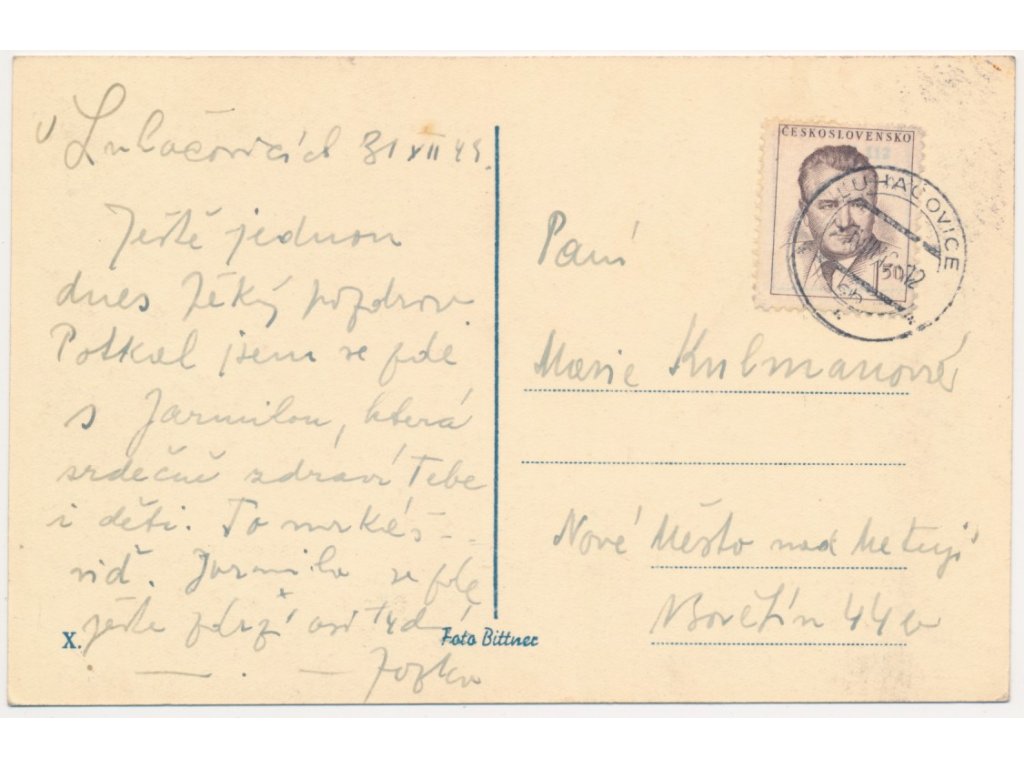 v Luhačovicích 31 XII 49.
Ještě jednou
dnes pozdrav.
Potkal jsem se zde
s Jarmilou, která
srdečně zdraví Tebe
i děti. To mrkáš –
viď. Jarmila se zde
ještě zdrží asi týden
Jožka
X.
Foto Bittner
ČESKOSLOVENSKO
LUHAČOVICE
Paní
Marie Kulmanová
Nové Město nad Metují
44